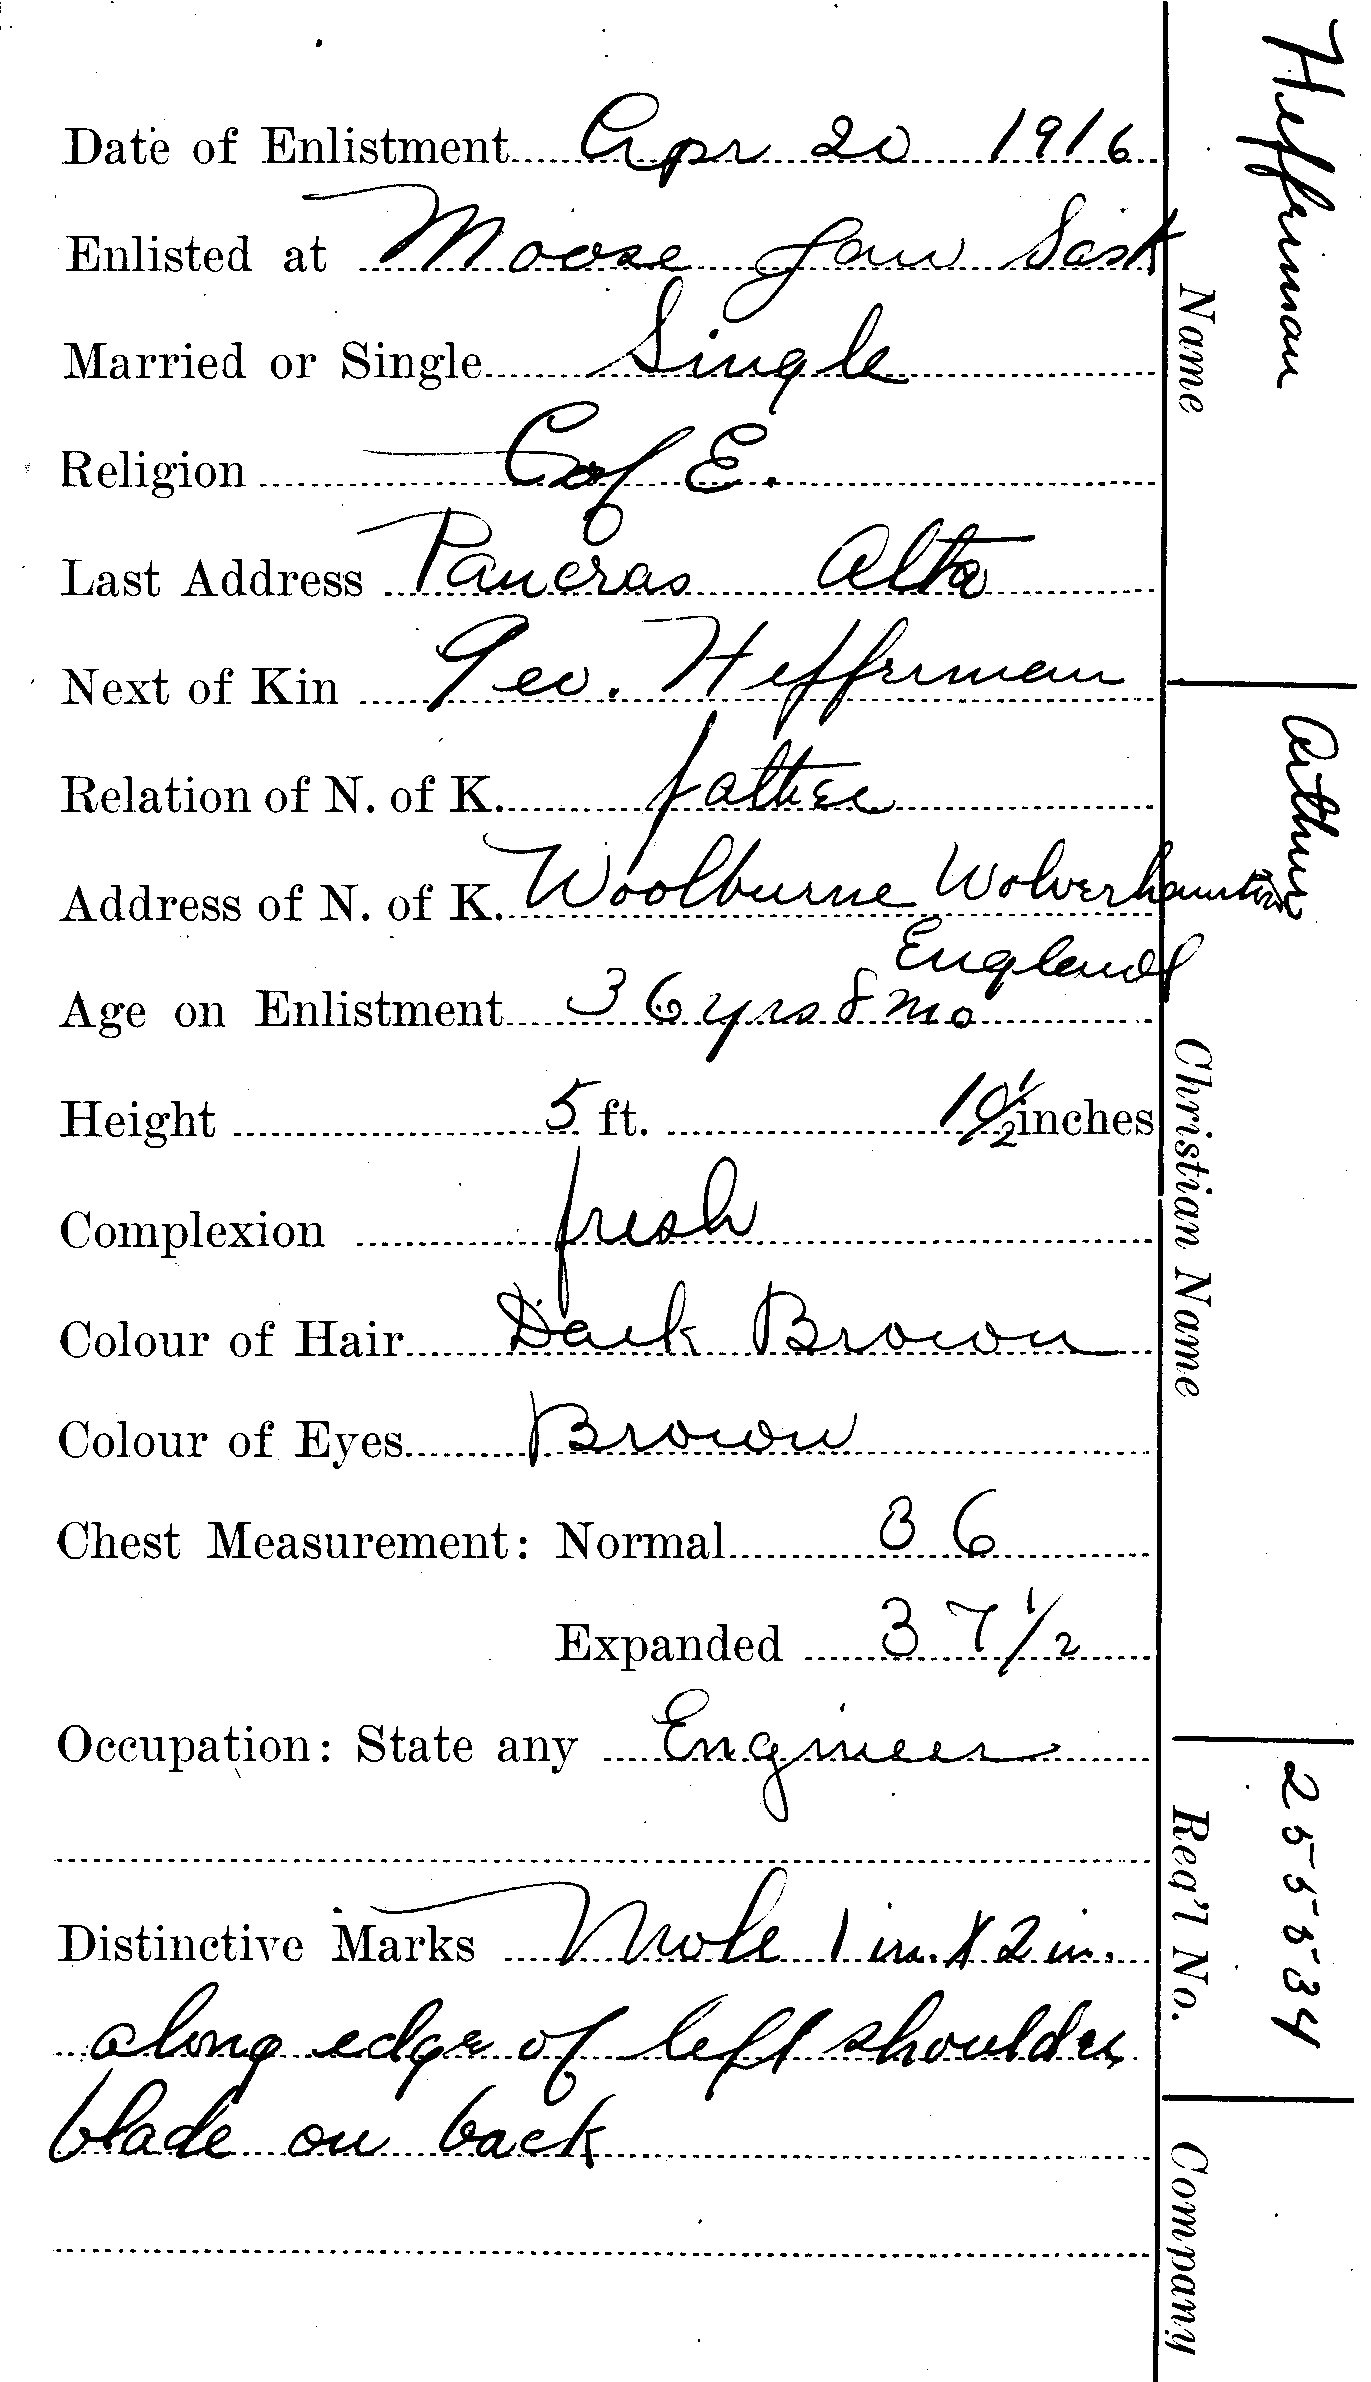 Date of Enlistment Apr 20 1916
Enlisted at Moose Jaw Sask
Married or Single Single
Religion C of E.
Last Address Pancras Alta
Next of Kin Geo. Heffernan
Relation of N. of K. father
Address of N. of K. Woolburne Wolverhamton
England
Age on Enlistment 36 yrs 8 mo
Height 5 ft. 10 1/2 inches
Complexion fresh
Colour of Hair Dark Brown
Colour of Eyes Brown
Chest Measurement: Normal 36
Expanded 37 1/2
Occupation: State any Engineer
Distinctive Marks Mole 1 in. X 2 in.
along edge of left shoulder
blade on back
Name Heffernan
Christian Name Arthur
Reg'l No. 255534
Company